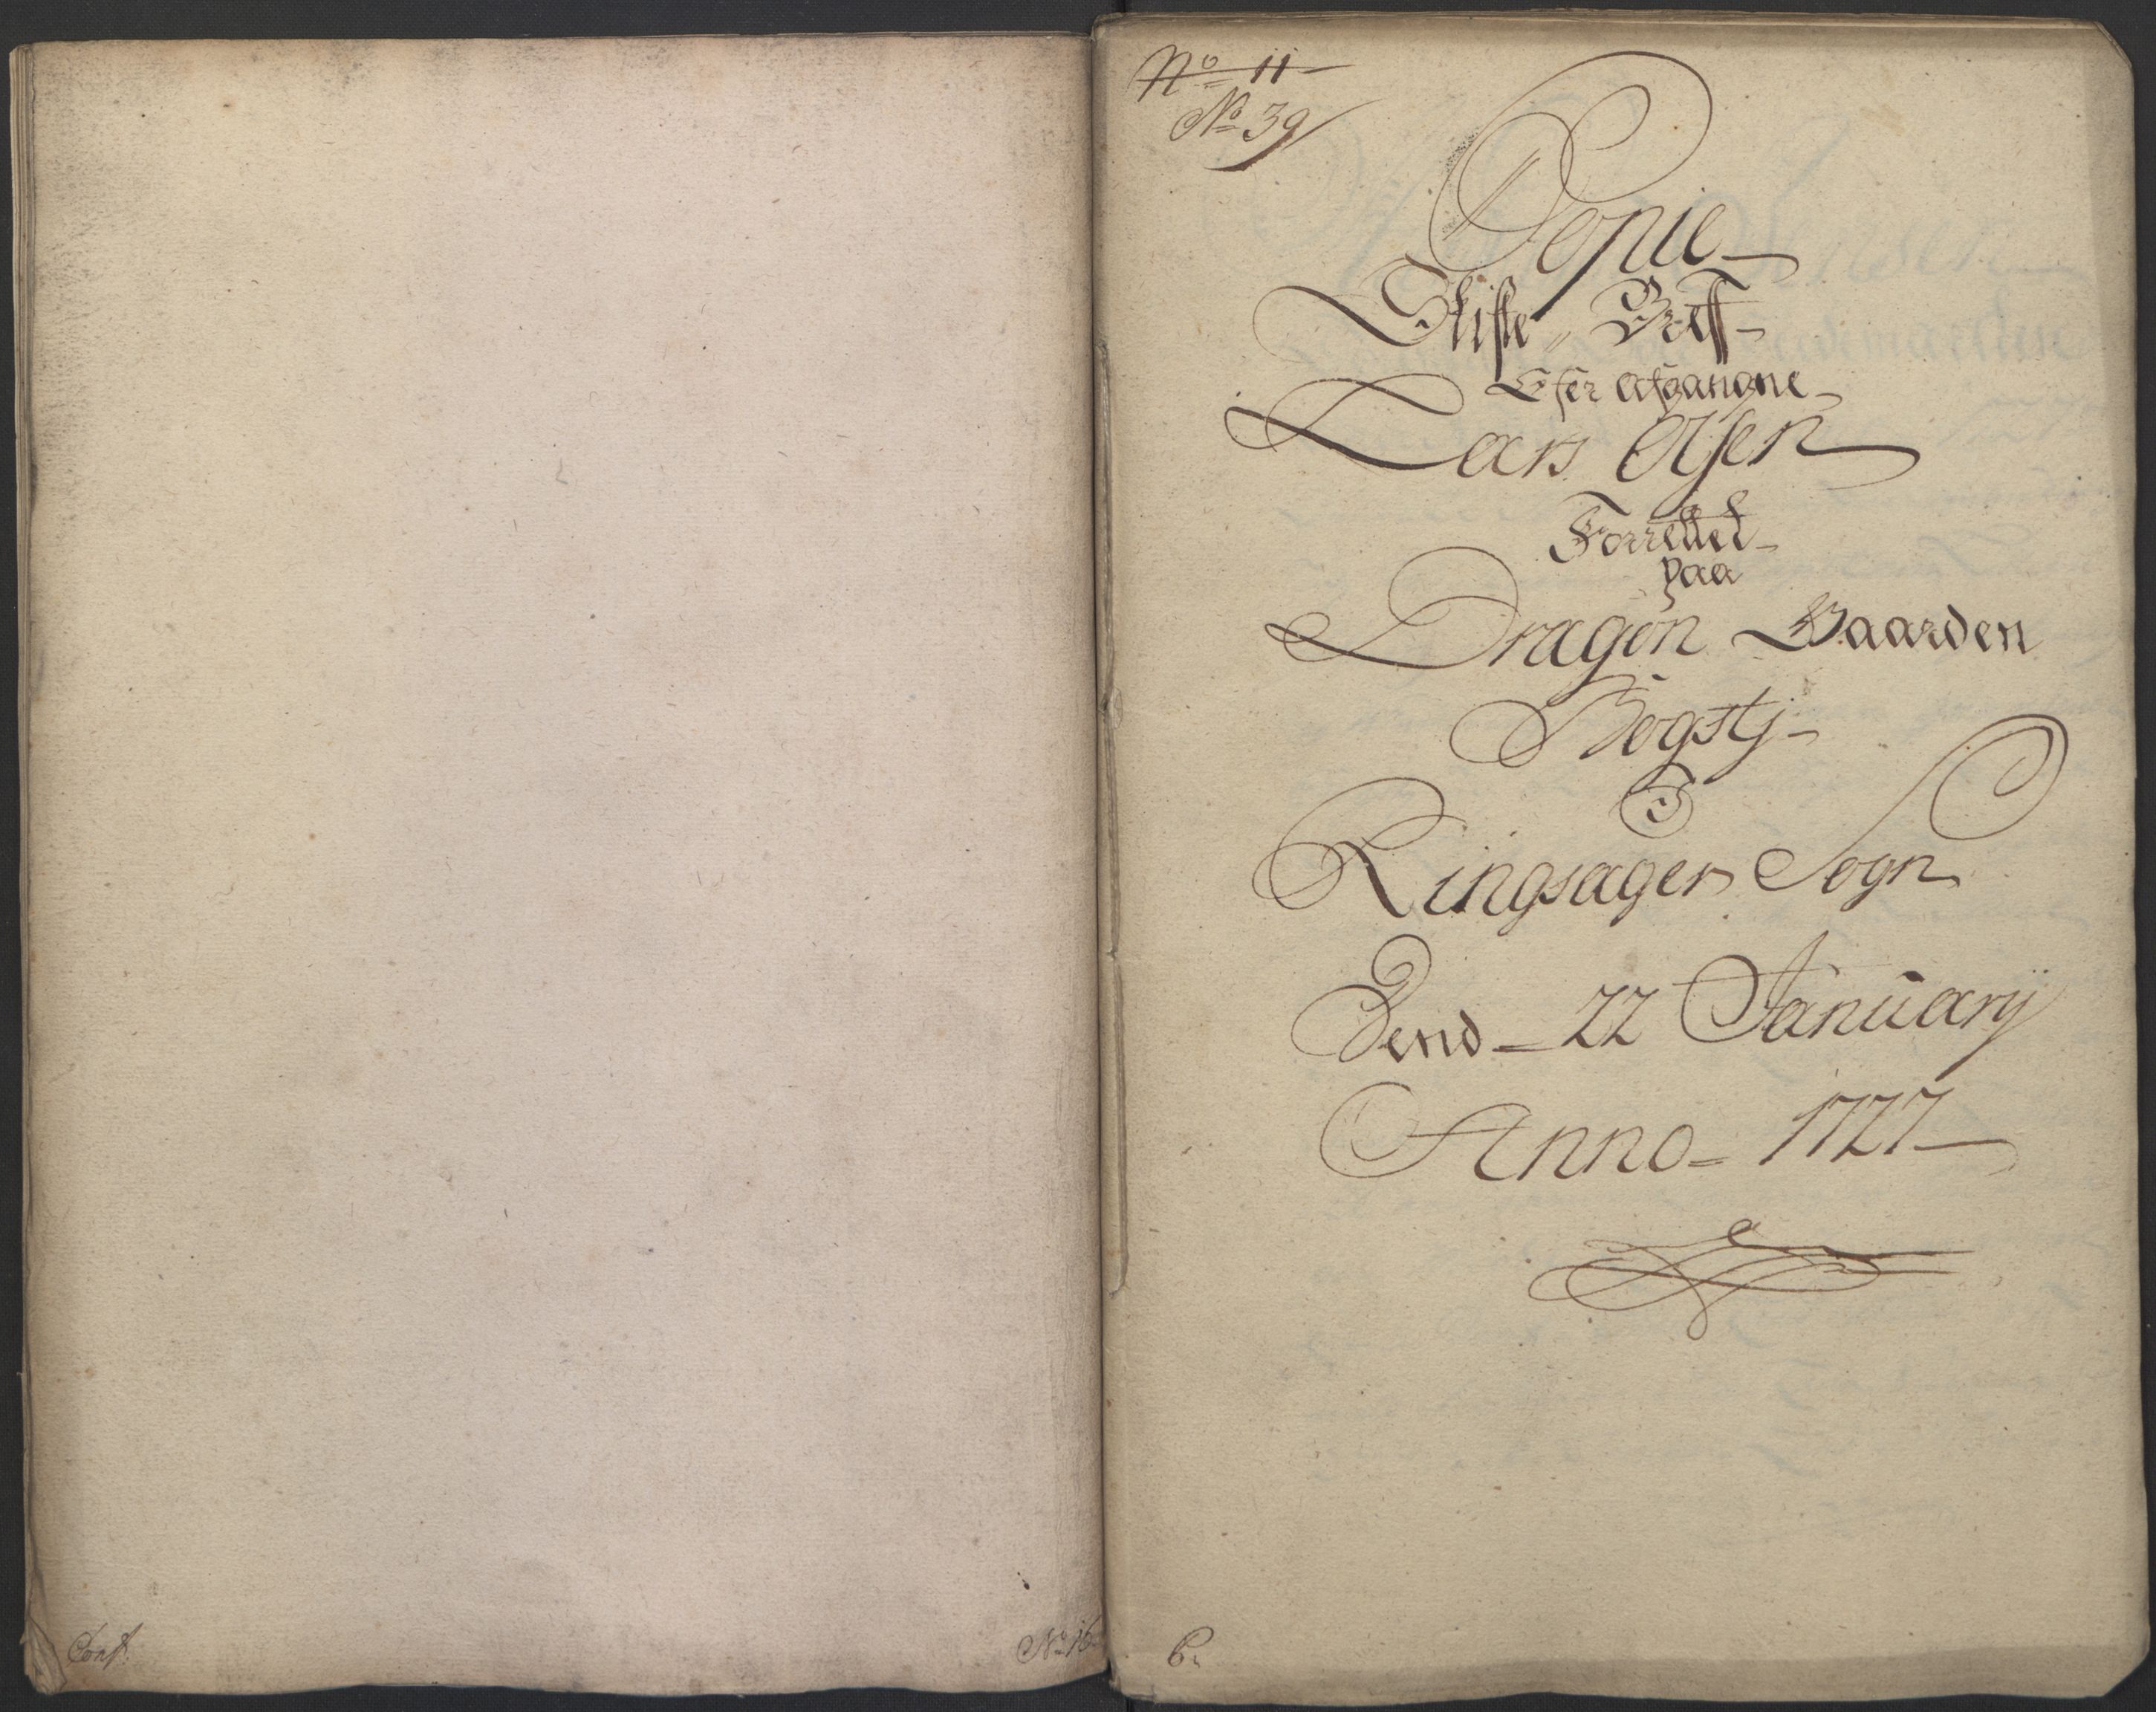 Conf.
No. 16
No 11
No 39
Copie
Skifte-Breff
Efter afgangne
Lars Olsen
Forrettet
paa
Dragon Gaarden
Bogstj
I
Ringsager Sogn
Dend 22 January
Anno 1727